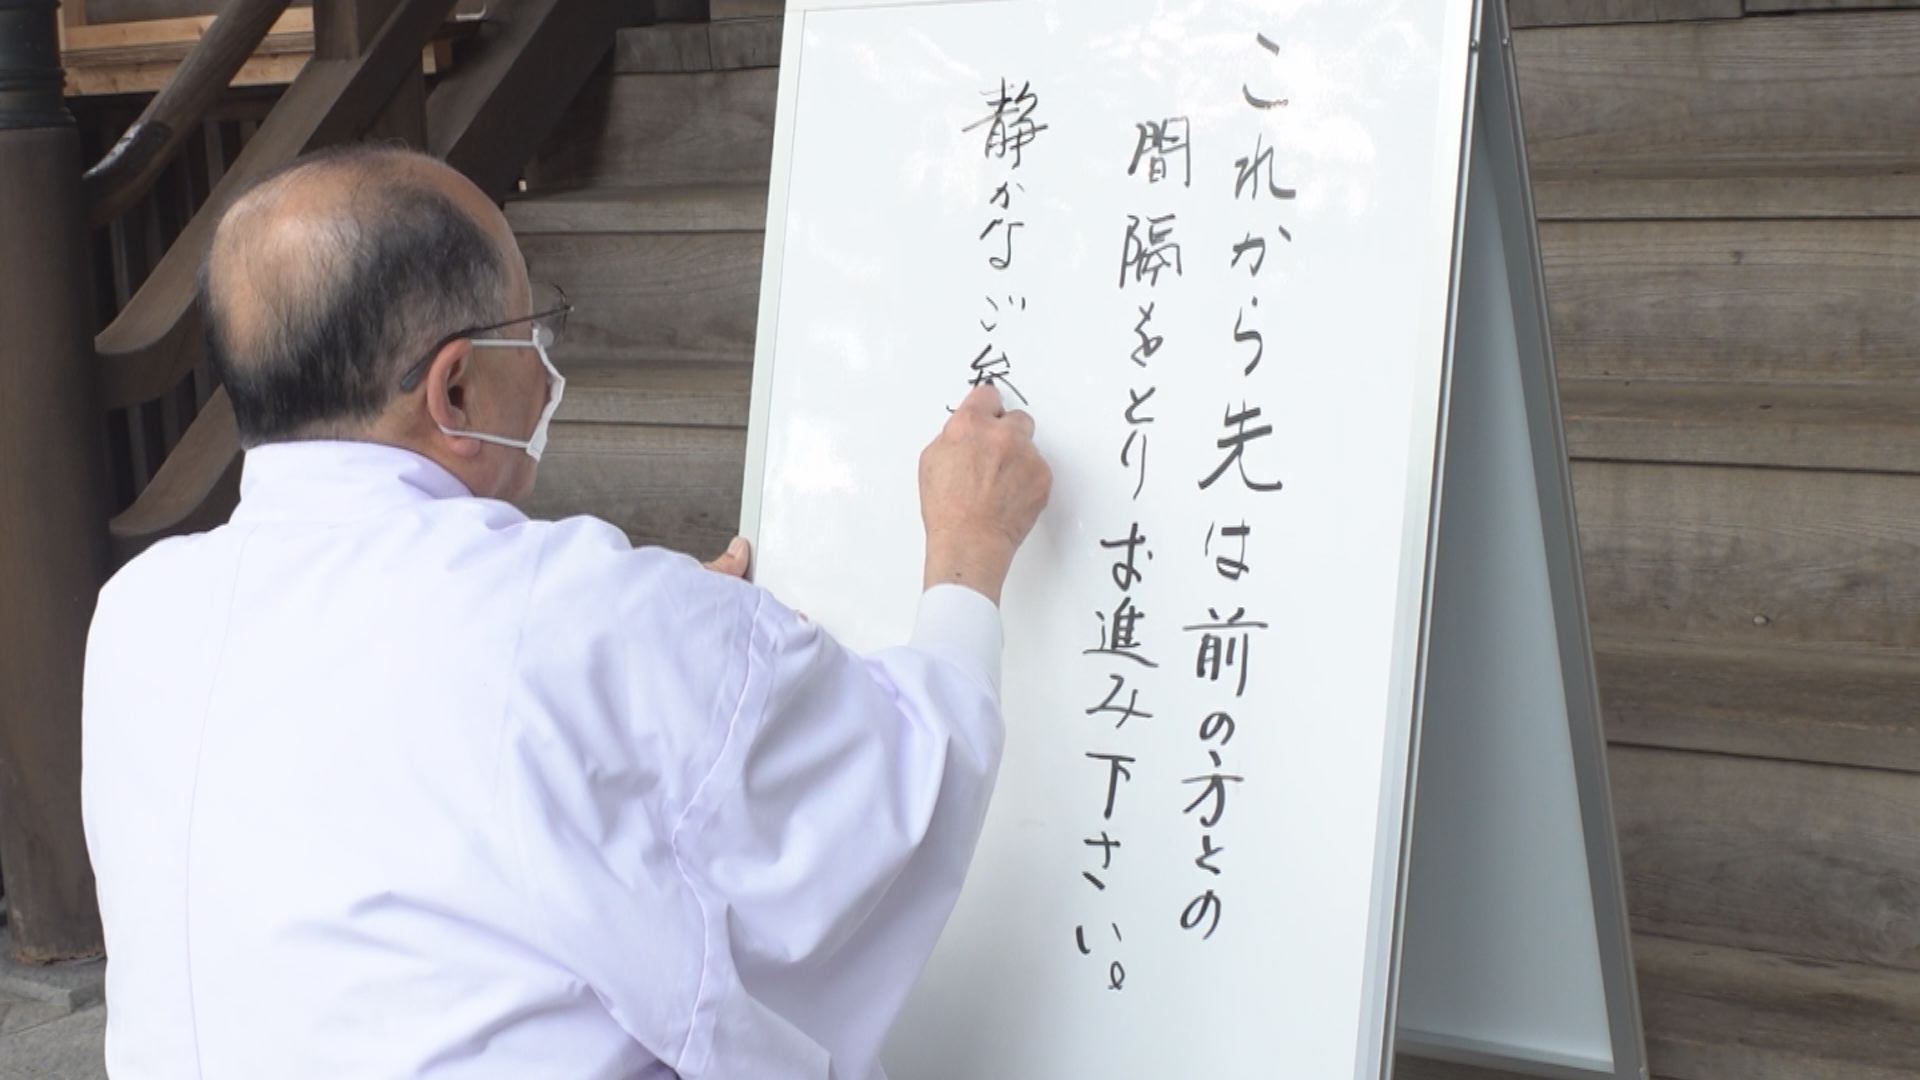 これから先は前の方との
間隔をとりお進み下さい。
静かなご参